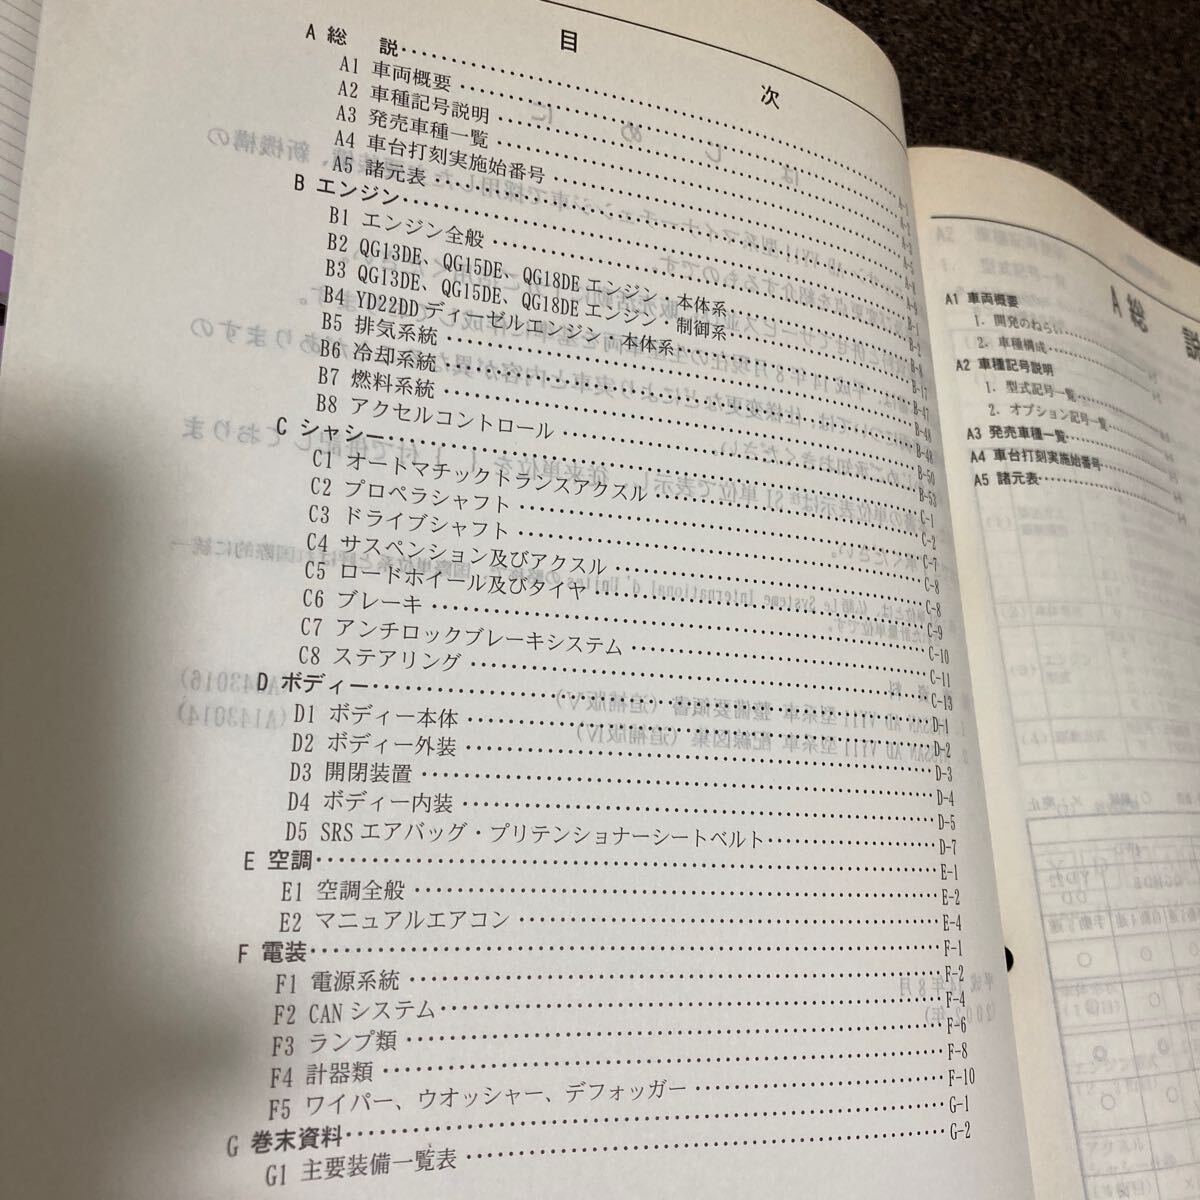 目 次
A 総 説
A1 車両概要
A2 車種記号説明
A3 発売車種一覧
A4 車台打刻実施始番号
A5 諸元表
B エンジン
B1 エンジン全般
B2 QG13DE、QG15DE、QG18DEエンジン・本体系
B3 QG13DE、QG15DE、QG18DEエンジン・制御系
B4 YD22DDディーゼルエンジン・本体系
B5 排気系統
B6 冷却系統
B7 燃料系統
B8 アクセルコントロール
C シャシー
C1 オートマチックトランスアクスル
C2 プロペラシャフト
C3 ドライブシャフト
C4 サスペンション及びアクスル
C5 ロードホイール及びタイヤ
C6 ブレーキ
C7 アンチロックブレーキシステム
C8 ステアリング
D ボディー
D1 ボディー本体
D2 ボディー外装
D3 開閉装置
D4 ボディー内装
D5 SRSエアバッグ・プリテンショナーシートベルト
E 空調
E1 空調全般
E2 マニュアルエアコン
F 電装
F1 電源系統
F2 CANシステム
F3 ランプ類
F4 計器類
F5 ワイパー、ウオッシャー、デフォッガー
G 巻末資料
G1 主要装備一覧表
B-1
B-2
B-17
B-47
B-48
B-48
B-50
B-53
C-1
C-2
C-7
C-8
C-8
C-9
C-10
C-11
C-13
D-1
D-2
D-3
D-4
D-5
D-7
E-1
E-2
E-4
F-1
F-2
F-4
F-6
F-8
F-10
G-1
G-2
A 総 説
A1 車両概要
1. 開発のねらい
2. 車種構成
A2 車種記号説明
1. 型式記号一覧
2. オプション記号一覧
A3 発売車種一覧
A4 車台打刻実施始番号
A5 諸元表